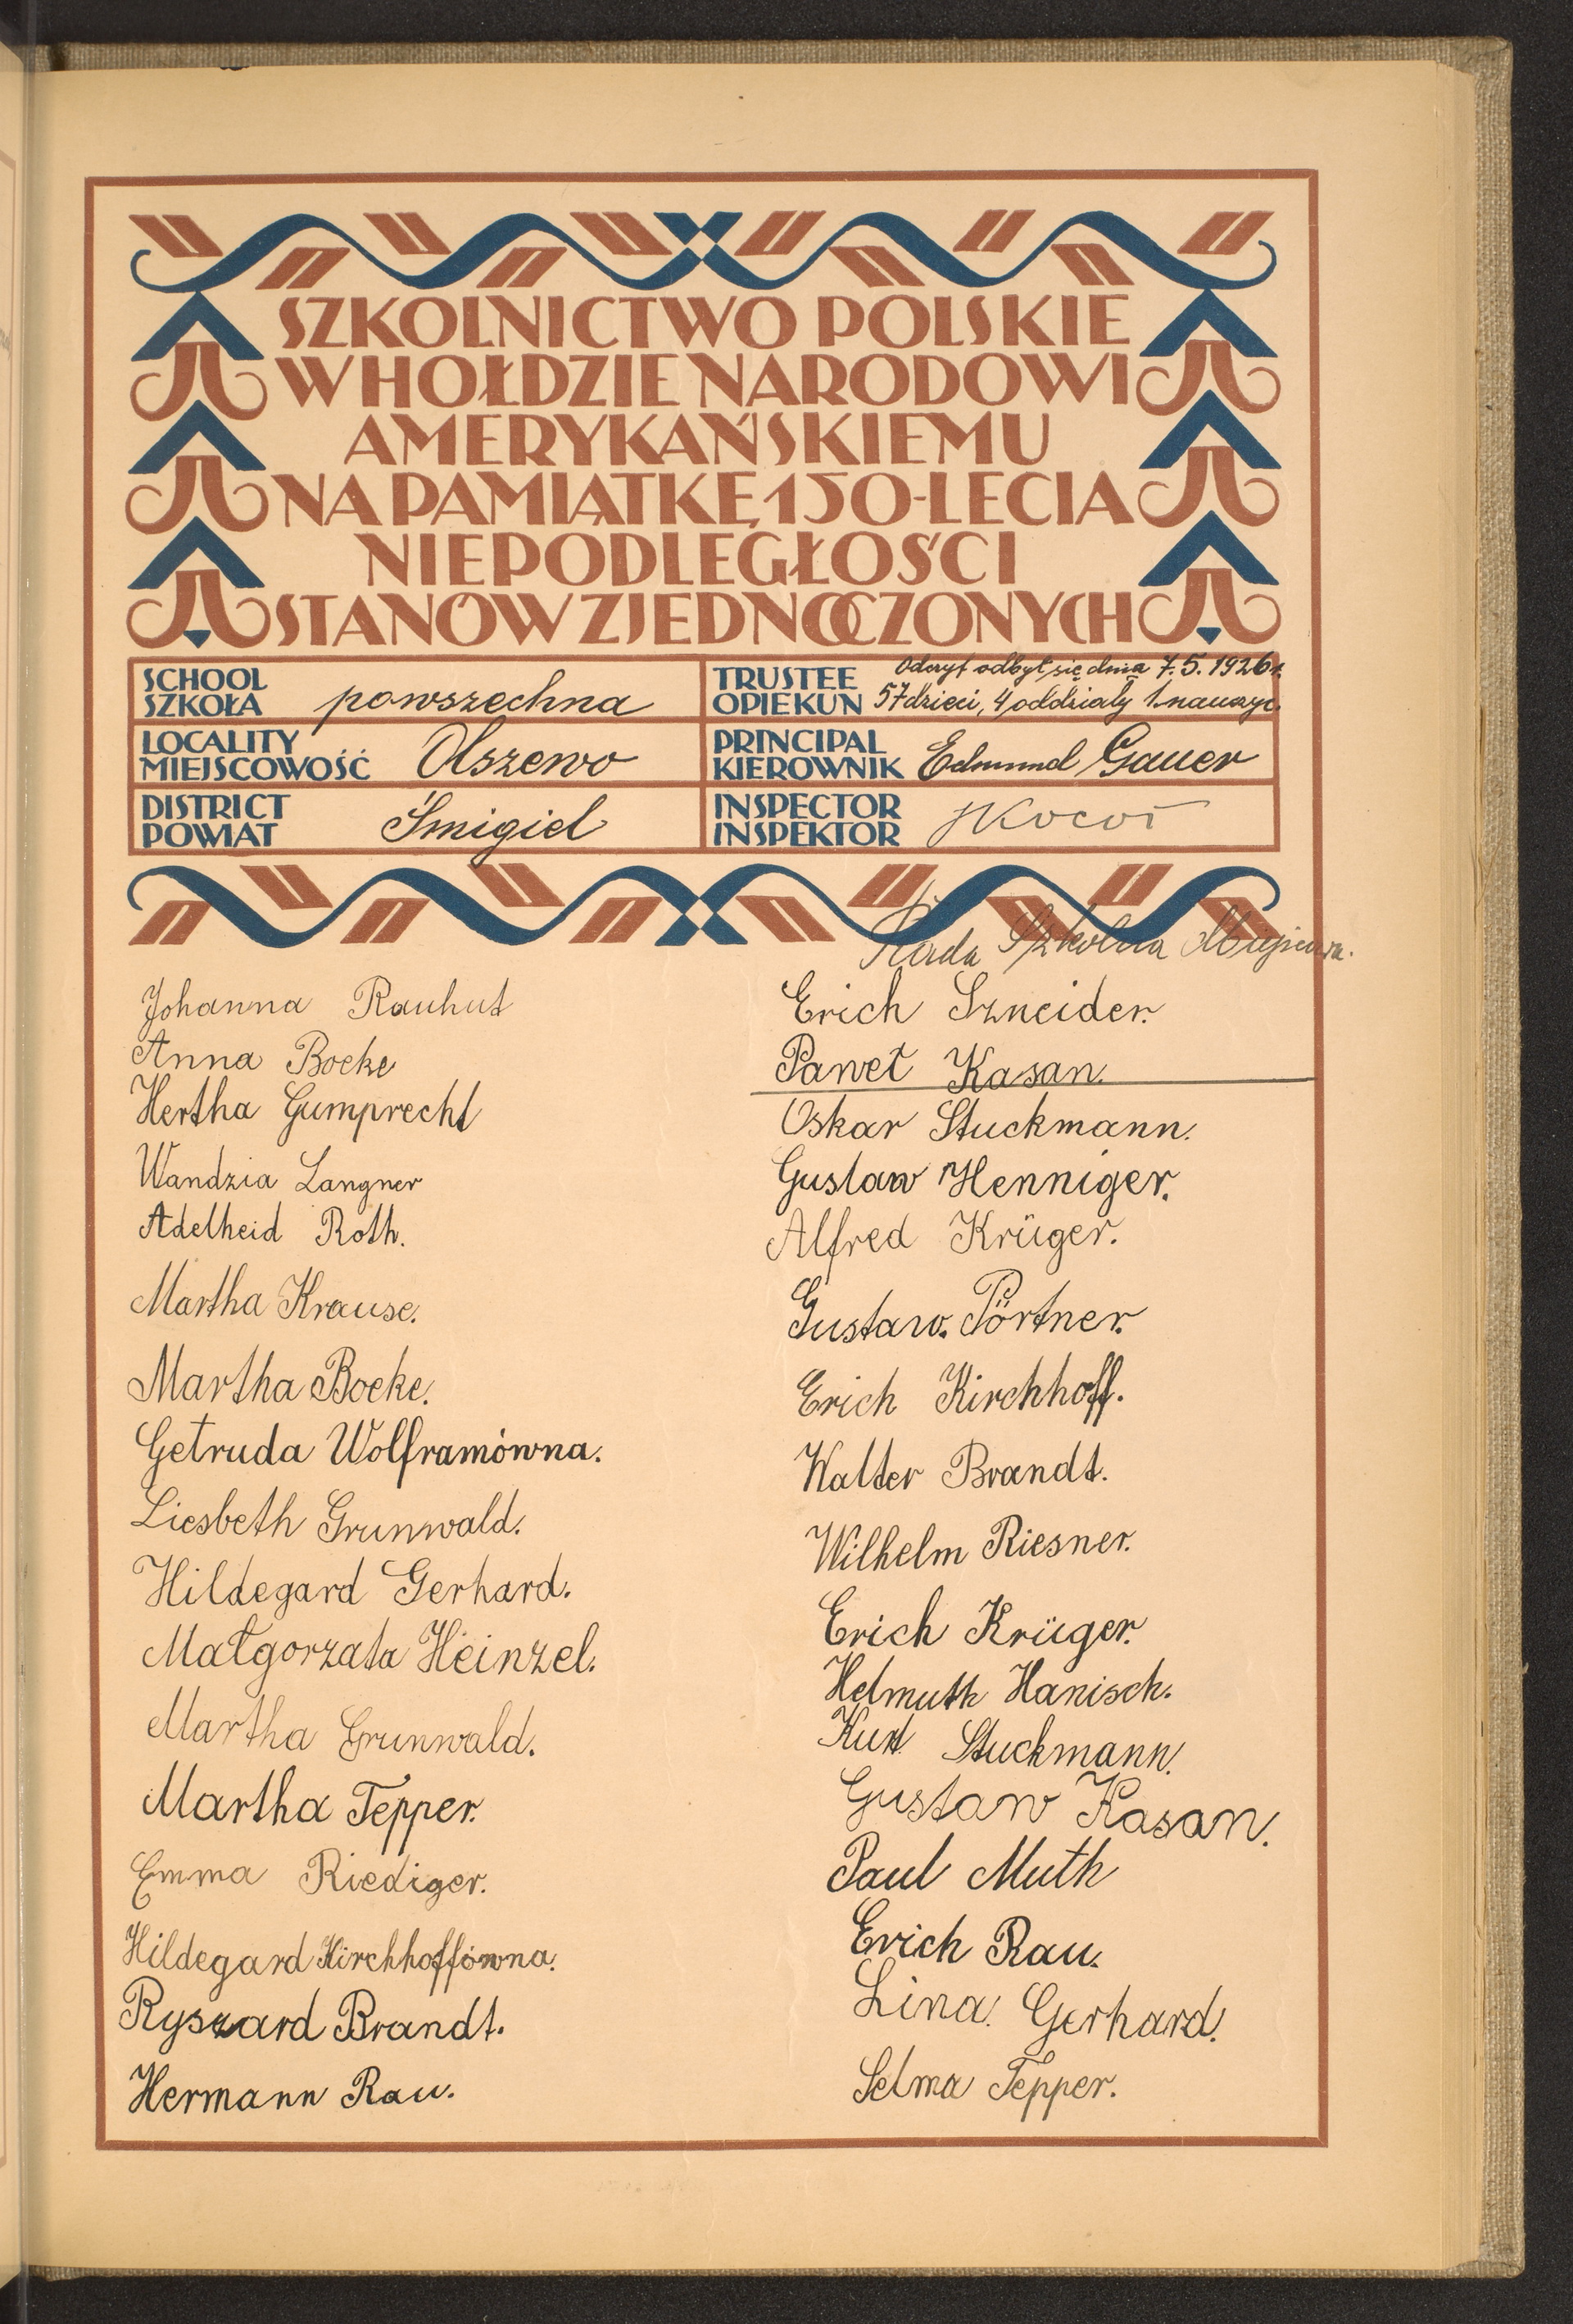 SZKOLNICTWO POLSKIE
W HOŁDZIE NARODOWI
AMERYKAŃSKIEMU
NA PAMIĄTKĘ 150-LECIA
NIEPODLEGŁOŚCI
STANÓW ZJEDNOCZONYCH
SCHOOL
SZKOŁA powszechna
TRUSTEE Odczyt odbył się dnia 7.5.1926 r.
OPIEKUN 57 dzieci, 4 oddziały 1. nauczyc.
LOCALITY
MIEJSCOWOŚĆ Olszewo
PRINCIPAL
KIEROWNIK Edmund Gauer
DISTRICT
POWIAT Śmigiel
INSPECTOR
INSPEKTOR
Rada Szkolna Miejscowa.
Johanna Rauhut
Anna Boeke
Hertha Gumprecht
Wandzia Langner
Adelheid Roth.
Martha Krause.
Martha Boeke.
Getruda Wolframówna.
Liesbeth Grunwald.
Hildegard Gerhard.
Małgorzata Heinzel.
Martha Grunwald.
Martha Tepper.
Emma Riediger.
Hildegard Kirchhoffówna.
Ryszard Brandt.
Hermann Rau.
Erich Szneider.
Paweł Kasan.
Oskar Stuckmann.
Gustaw Henniger.
Alfred Krüger.
Gustaw. Pörtner.
Erich Kirchhoff.
Walter Brandt.
Wilhelm Riesner.
Erich Krüger.
Helmuth Hanisch.
Kurt Stuckmann.
Gustaw Kasan.
Paul Muth
Erich Rau.
Lina. Gerhard.
Selma Tepper.